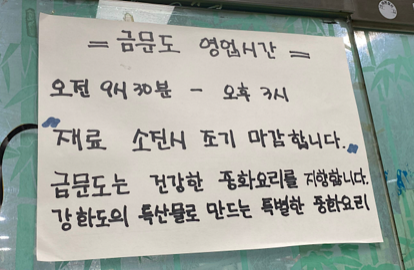 = 금문도 영업시간 =
오전 9시 30분 - 오후 3시
재료 소진시 조기 마감합니다.
금문도는 건강한 중화요리를 지향합니다.
강화도의 특산물로 만드는 특별한 중화요리